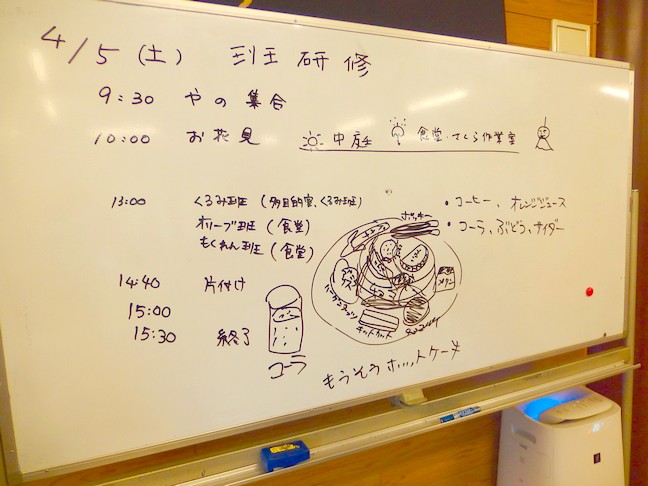 4/5 (土) 班研修
9:30 やの集合
10:00 お花見 中庭 食堂・さくら作業室
13:00 くるみ班 (多目的室、くるみ班)
オリーブ班 (食堂)
もくれん班 (食堂)
・コーヒー、オレンジジュース
・コーラ、ぶどう、サイダー
14:40 片付け
15:00
15:30 終了
コーラ
ポッキー
メロン
キットカット
もうそうホットケーキ
SHARP